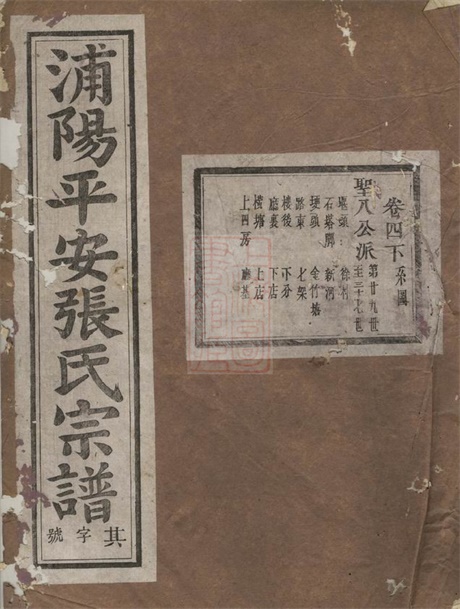 浦陽平安張氏宗譜
其字號
卷四下系圖
聖八公派
第廿九世
至三十七世
石塔腳 新湾
埂頭 金竹塘
路東 七架
樓後 下分
廳裏 下店
横塘 上店
上四房 廳基